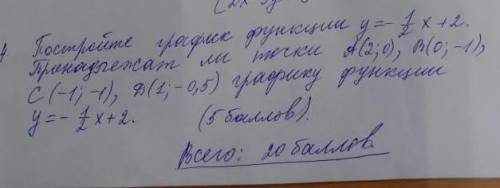 Постройте график функции y = - 1/2 x + 2.
Принадлежат ли точки A(2; 0), B(0; -1),
C(-1; -1), D(1; -0,5) графику функции
y = - 1/2 x + 2. (5 баллов).
Всего: 20 баллов.